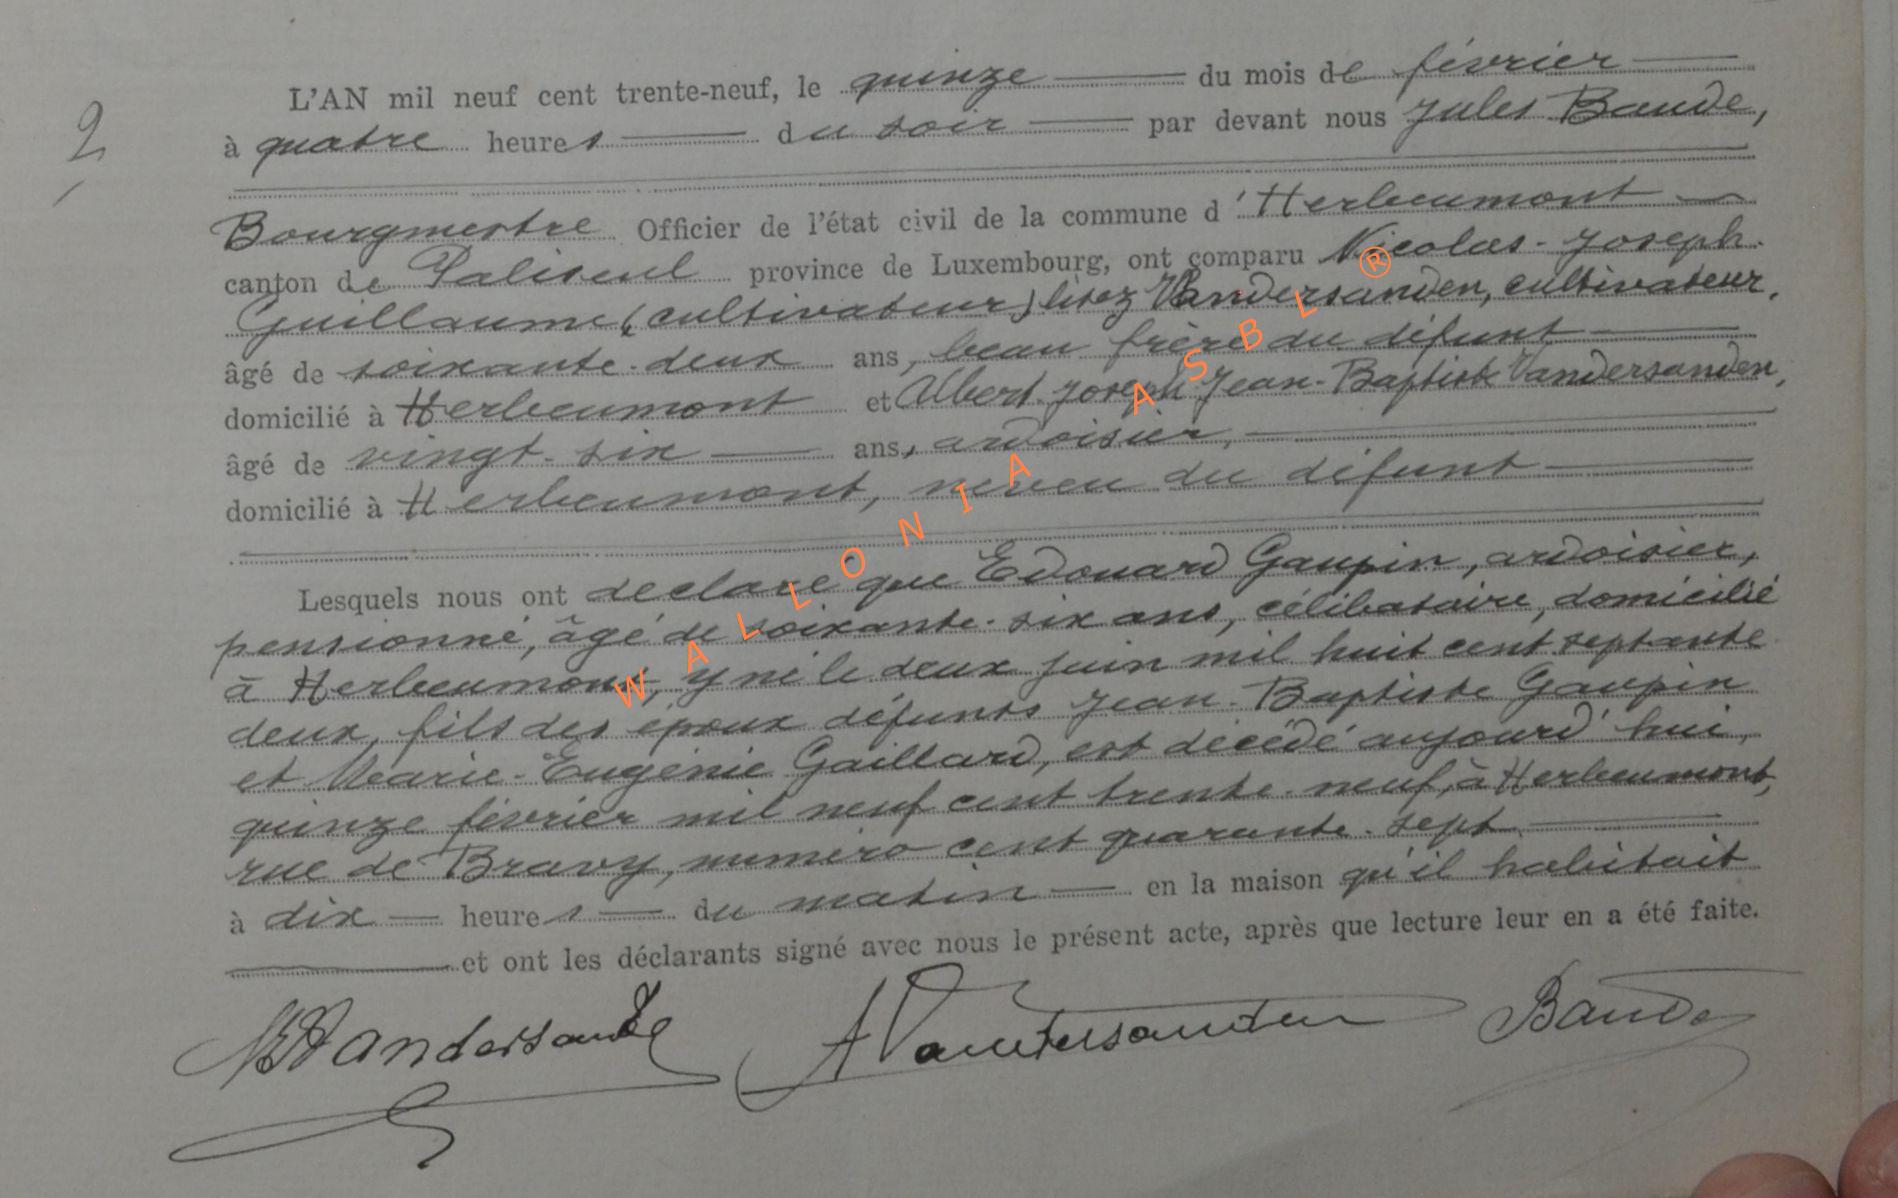 2
L'AN mil neuf cent trente-neuf, le quinze du mois de février
à quatre heures du soir par devant nous Jules Baude,
Bourgmestre Officier de l'état civil de la commune d'Herbeumont
canton de Paliseul province de Luxembourg, ont comparu Nicolas-Joseph-
Guillaume (cultivateur) lisez Vandersanden, cultivateur,
âgé de soixante-deux ans, beau frère du défunt
domicilié à Herbeumont et Albert-Joseph-Jean-Baptiste Vandersanden,
âgé de vingt-six ans, ardoisier,
domicilié à Herbeumont, neveu du défunt
Lesquels nous ont declaré que Edouard Gaupin, ardoisier,
pensionné, âgé de soixante-six ans, célibataire, domicilié
à Herbeumont, y né le deux juin mil huit cent septante
deux, fils des époux défunts Jean-Baptiste Gaupin
et Marie-Eugénie Gaillard, est décédé aujourd'hui,
quinze février mil neuf cent trente-neuf, à Herbeumont,
rue de Bravy, numéro cent quarante-sept
à dix heures du matin en la maison qu'il habitait
et ont les déclarants signé avec nous le présent acte, après que lecture leur en a été faite.
Vandersanden A Vandersanden Baude
WALLONIA ASBL ®